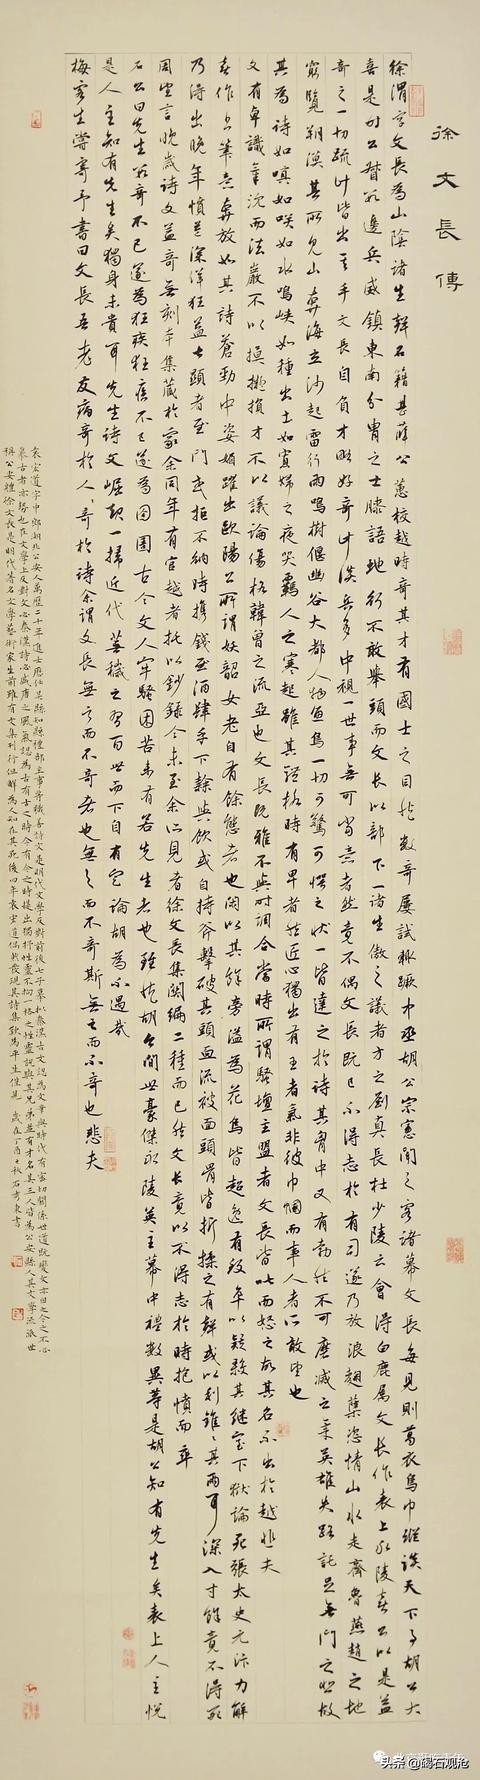 徐文長傳
徐渭字文長為山陰諸生聲名籍甚薛公蕙校越時奇其才有國士之目然數奇屢試輒蹶中丞胡公宗憲聞之客諸幕文長每見則葛衣烏巾縱談天下事胡公大
喜是時公督數邊兵威鎮東南介胄之士膝語蛇行不敢舉頭而文長以部下一諸生傲之議者方之劉真長杜少陵云會得白鹿屬文長作表表上永陵喜公以是益
奇之一切疏計皆出其手文長自負才略好奇計談兵多中視一世事無可當意者然竟不偶文長既已不得志於有司遂乃放浪麴蘗恣情山水走齊魯燕趙之地
窮覽朔漠其所見山奔海立沙起雷行雨鳴樹偃幽谷大都人物魚鳥一切可驚可愕之狀一皆達之於詩其胸中又有勃然不可磨滅之氣英雄失路託足無門之悲故
其為詩如嗔如笑如水鳴峽如種出土如寡婦之夜哭羈人之寒起雖其體格時有卑者然匠心獨出有王者氣非彼巾幗而事人者所敢望也
文有卓識氣沉而法嚴不以摸擬損才不以議論傷格韓曾之流亞也文長既雅不與時調合當時所謂騷壇主盟者文長皆叱而怒之故其名不出於越悲夫
喜作書筆意奔放如其詩蒼勁中姿媚躍出歐陽公所謂妖韶女老自有餘態者也間以其餘旁溢為花鳥皆超逸有致卒以疑殺其繼室下獄論死張太史元汴力解
乃得出晚年憤益深佯狂益甚顯者至門或拒不納時攜錢至酒肆呼下隸與飲或自持斧擊破其頭血流被面頭骨皆折揉之有聲或以利錐錐其兩耳深入寸餘竟不得死
周望言晚歲詩文益奇無刻本集藏於家余同年有官越者托以鈔錄今未至余所見者徐文長集闕編二種而已然文長竟以不得志於時抱憤而卒
石公曰先生數奇不已遂為狂疾狂疾不已遂為囹圄古今文人牢騷困苦未有若先生者也雖然胡公間世豪傑永陵英主幕中禮數異等是胡公知有先生矣表上人主悅
是人主知有先生矣獨身未貴耳先生詩文崛起一掃近代蕪穢之習百世而下自有定論胡為不遇哉
梅客生嘗寄予書曰文長吾老友病奇於人人奇於詩余謂文長無之而不奇者也無之而不奇斯無之而不奇也悲夫
袁宏道字中郎湖北公安人萬歷二十年進士歷任吳縣知縣禮部主事等職善詩文是明代文學反對前後七子摹擬秦漢古文認為文章與時代有密切關係世道既變文亦因之今之不必
摹古者亦勢也在文學上反對文必秦漢詩必盛唐之風氣認為古有古之時今有今之時提出獨抒性靈不拘格套之性靈說與其兄弟並有才名其三人皆為公安縣人其文學流派世
稱公安體徐文長是明代著名文學藝術家生前雖有文集刊行但鮮為人知在其死後四年袁宏道偶然發現其詩集歎為平生僅見 歲在丁酉之秋
头条@碣石观沧